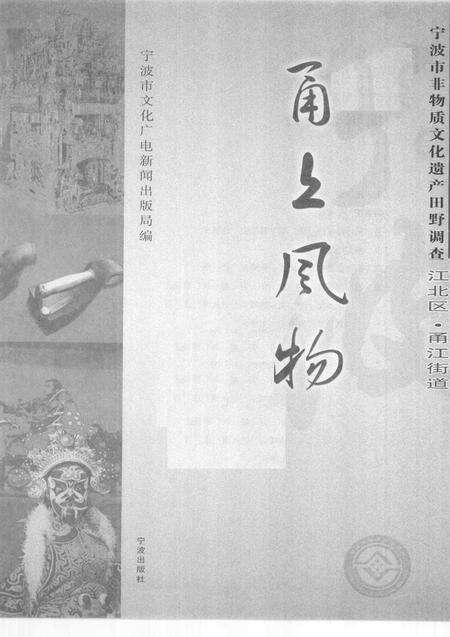 宁波市非物质文化遗产田野调查 江北区·甬江街道
甬上风物
宁波市文化广电新闻出版局编
宁波出版社